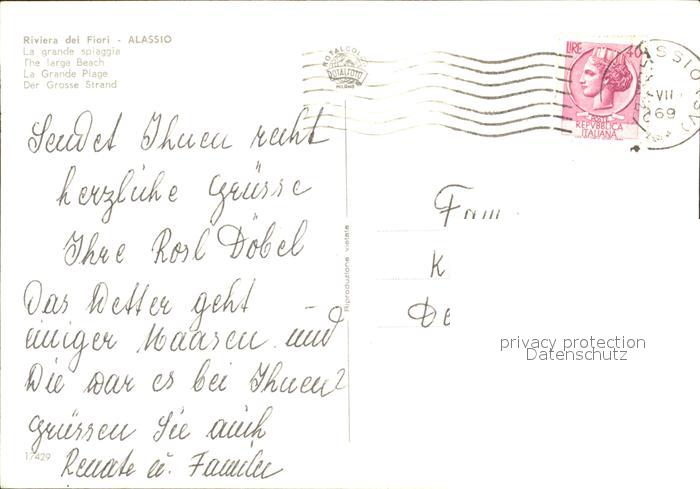 Riviera dei Fiori - ALASSIO
La grande spiaggia
The large Beach
La Grande Plage
Der Grosse Strand
ROTALCOLOR
ROTALFOTO
MILANO
LIRE 40
POSTE
REPVBBLICA
ITALIANA
VII
69
Sendet Ihnen recht
herzliche Grüsse
Ihre Rosl Döbel
Das Wetter geht
einiger Maasen und
Die war es bei Ihnen?
grüssen Sie auch
Renate u. Familie
17429
Riproduzione vietata
Fam
K
De
privacy protection
Datenschutz